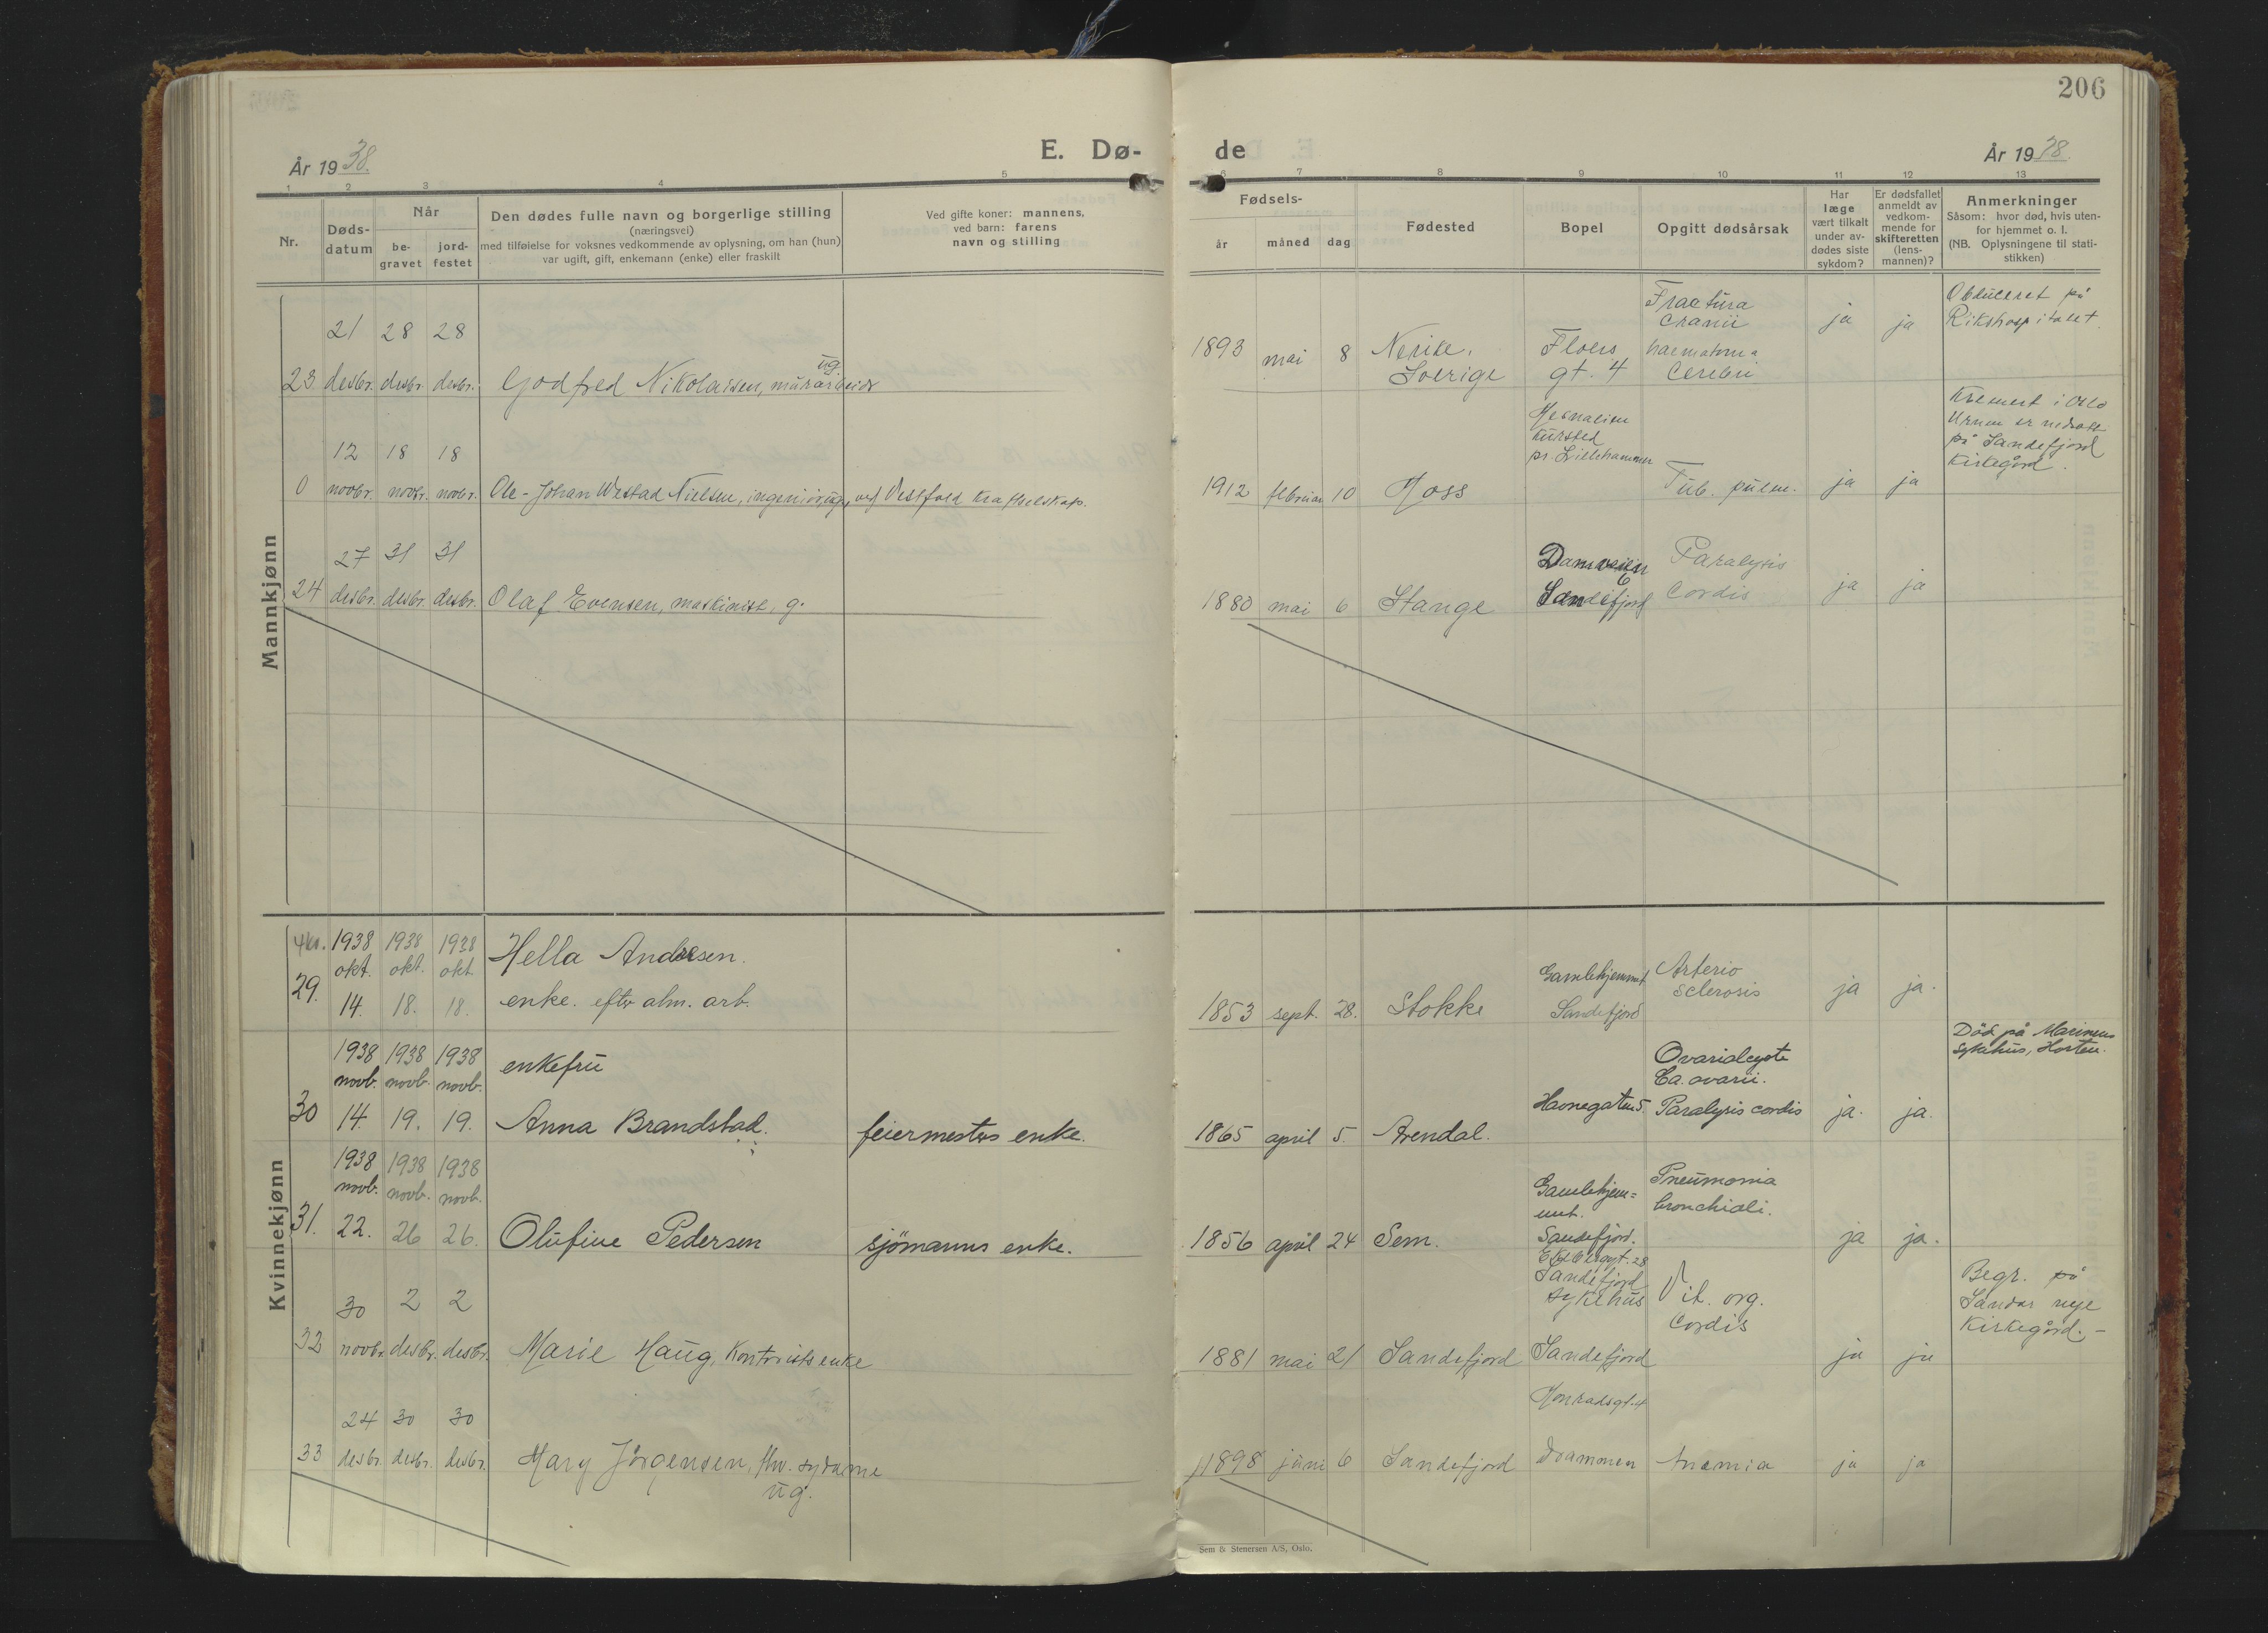 206
År 1938.
E. Dø-
de
År 1938.
1 2 3 4 5 6 7 8 9 10 11 12 13
Nr.
Døds-
datum
Når
be-
gravet
jord-
festet
Den dødes fulle navn og borgerlige stilling
(næringsvei)
med tilføielse for voksnes vedkommende av oplysning, om han (hun)
var ugift, gift, enkemann (enke) eller fraskilt
Ved gifte koner: mannens,
ved barn: farens
navn og stilling
Fødsels-
år måned dag
Fødested
Bopel
Opgitt dødsårsak
Har
læge
vært tilkalt
under av-
dødes siste
sykdom?
Er dødsfallet
anmeldt av
vedkom-
mende for
skifteretten
(lens-
mannen)?
Anmerkninger
Såsom: hvor død, hvis uten-
for hjemmet o. l.
(NB. Oplysningene til stati-
stikken)
Mannkjønn
21 28 28
23 desbr. desbr. desbr.
ug.
Godfred Nikolaisen, murarbeidr
1893 mai 8
Nerike,
Sverige
Floers
gt. 4
Fractura
cranii
haematoma
cerebri
ja ja
Obduceret på
Rikshospitalet
12 18 18
0 novbr. novbr. novbr.
Ole-Johan Westad Nielsen, ingeniør, ug., ved Vestfold kraftselskap.
1912 februar 10
Moss
Mesnalien
kursted
pr. Lillehammer
Tub. pulm.
ja ja
Kremert i Oslo
Urnen er nedsatt
på Sandefjord
Kirkegård.
27 31 31
24 desbr. desbr. desbr.
Olaf Evensen, maskinist, g.
1880 mai 6
Stange
Damveien
6
Sandefjord
Paralysis
Cordis
ja ja
Kvinnekjønn
4kr. 1938 1938 1938
okt. okt. okt.
29. 14. 18. 18.
Hella Andersen.
enke. efter alm. arb.
1853 sept. 28.
Stokke
Gamlehjemmet
Sandefjord
Arterio
sclerosis
ja ja.
1938 1938 1938
novb. novb. novb.
30 14. 19. 19.
enkefru
Anna Brandstad.
feiermesters enke.
1865 april 5.
Arendal.
Havnegaten 5.
Ovarialcyste
Ca. ovarii.
Paralysis cordis
ja. ja.
Död på Marinens
sykehus, Horten.
1938 1938 1938
novb. novb. novb.
31. 22. 26 26.
Olufine Pedersen
sjömanns enke.
1856 april 24
Sem.
Gamlehjem=
met.
Sandefjord.
Pneumonia
bronchiali.
ja ja.
30 2 2
32 novbr. desbr. desbr.
Marie Haug, Kontoristsenke
1881 mai 21
Sandefjord
Sandefjord
sykehus
Sandefjord
Vit. org.
cordis
ja ja
Begr. på
Sandar nye
Kirkegård. -
24 30 30
33 desbr. desbr. desbr.
Mary Jörgensen, fhv. sydame
ug.
1898 juni 6
Sandefjord
Konradsgt. 4
Drammen
Anemia
ja ja
Sem & Stenersen A/S, Oslo.